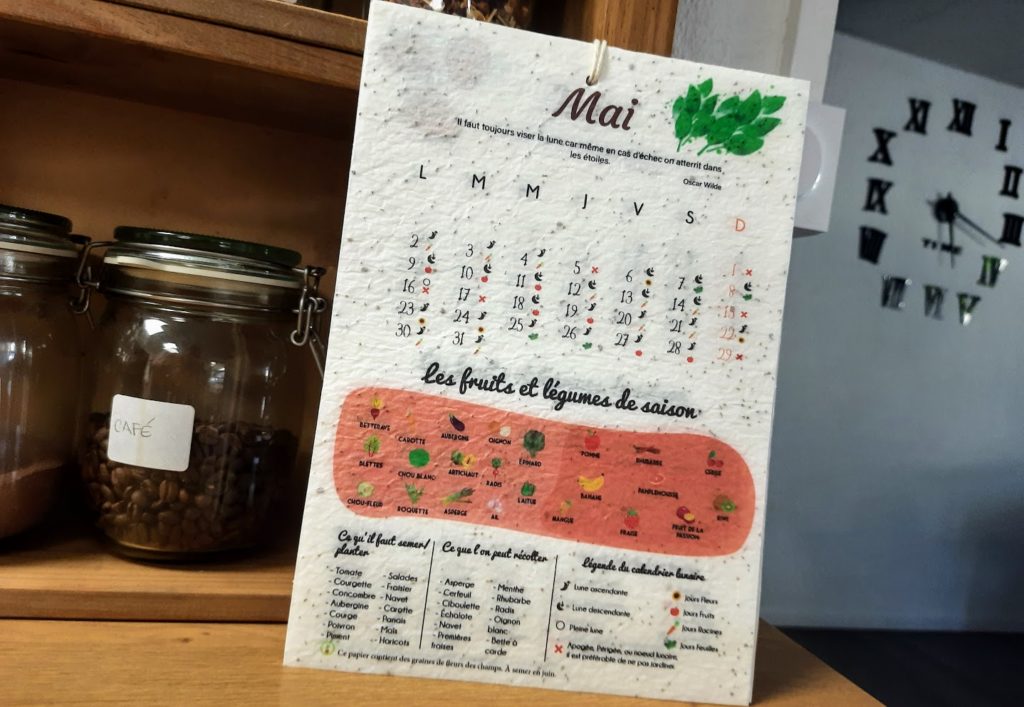 Mai
"Il faut toujours viser la lune car même en cas d'échec on atterrit dans
les étoiles.
Oscar Wilde
L M M J V S D
1
2 3 4 5 6 7 8
9 10 11 12 13 14 15
16 17 18 19 20 21 22
23 24 25 26 27 28 29
30 31
Les fruits et légumes de saison
BETTERAVE CAROTTE AUBERGINE OIGNON ÉPINARD POMME RHUBARBE CERISE
BLETTES CHOU BLANC ARTICHAUT RADIS LAITUE BANANE PAMPLEMOUSSE KIWI
CHOU-FLEUR ROQUETTE ASPERGE AIL MANGUE FRAISE FRUIT DE LA
PASSION
Ce qu'il faut semer/
planter
- Tomate
- Courgette
- Concombre
- Aubergine
- Courge
- Poivron
- Piment
- Salades
- Fraisier
- Navet
- Carotte
- Panais
- Maïs
- Haricots
Ce que l'on peut récolter
- Asperge
- Cerfeuil
- Ciboulette
- Échalote
- Navet
- Premières
fraises
- Menthe
- Rhubarbe
- Radis
- Oignon
blanc
- Bette à
carde
Légende du calendrier lunaire
Lune ascendante
Lune descendante
Pleine lune
Apogée, Périgée, ou noeud lunaire,
il est préférable de ne pas jardiner.
Jours Fleurs
Jours Fruits
Jours Racines
Jours Feuilles
Ce papier contient des graines de fleurs des champs. À semer en juin.
CAFÉ
XII
I
II
III
IV
V
VI
VII
VIII
IX
X
XI